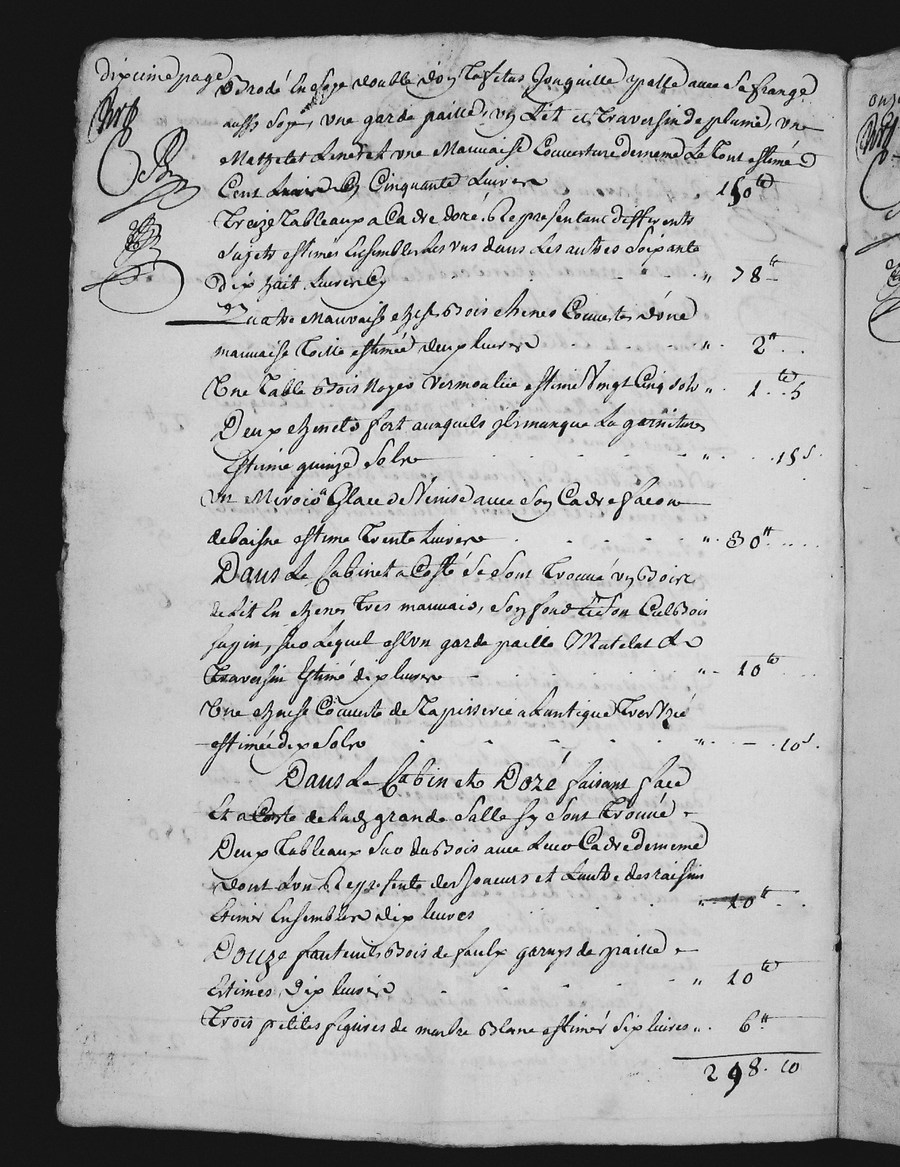 dixieme page
Brodé En soye double d'un Taffetas Jonquille palle avec sa frange
aussy soye, une garde paille, un Lit et Traversin de plume, une
Matelat Laine et une Mauvaise Couverture de meme Le Tout estimé
Cent Cinquante Livres 150 tt
Treize Tableaux a Cadre doré, Representant differents
sujets estimés Ensembles Les uns dans Les autres Soixante
Dix huit Livres Cy " 78 tt
Quatre Mauvaise chese Bois chenes Couvertes d'une
mauvaise Toille estimée deux livres " 2 tt
Une Table Bois Noyer vermoulüe estimé Vingt Cinq sols " 1 tt 5
Deux chenets fort auxquels il manque La garniture
Estimé quinze Solz " 15 s
Un Miroir a Glace de Venise avec Son Cadre facon
estimé Trente Livres " 30 tt
Dans Le Cabinet a Costé Se Sont Trouvé un Bois
de Lit En chenes Tres mauvais, Son fond et Son Ciel Bois
Sapin, sur Lequel est un garde paille Matelat et
Traversin Estimé dix livres " 10 tt
Une chese Couverte de Tapisserie a Lantique Tres Uzé
estimée dix Solz " 10 s
Dans Le Cabinet Dozé faisant face
Et a Costé de Lad grande Salle sy Sont Trouvé
Deux Tableaux Sur du Bois avec Leur Cadre de meme
dont Lun Represente des Joueurs et Lautre des raisin
Estimés Ensembles dix livres " 10 tt
Douze fauteuils Bois de faulx garnys de paille
Estimes Dix livres " 10 tt
Trois petites figures de marbre Blanc estimés Six livres " 6 tt
298 10